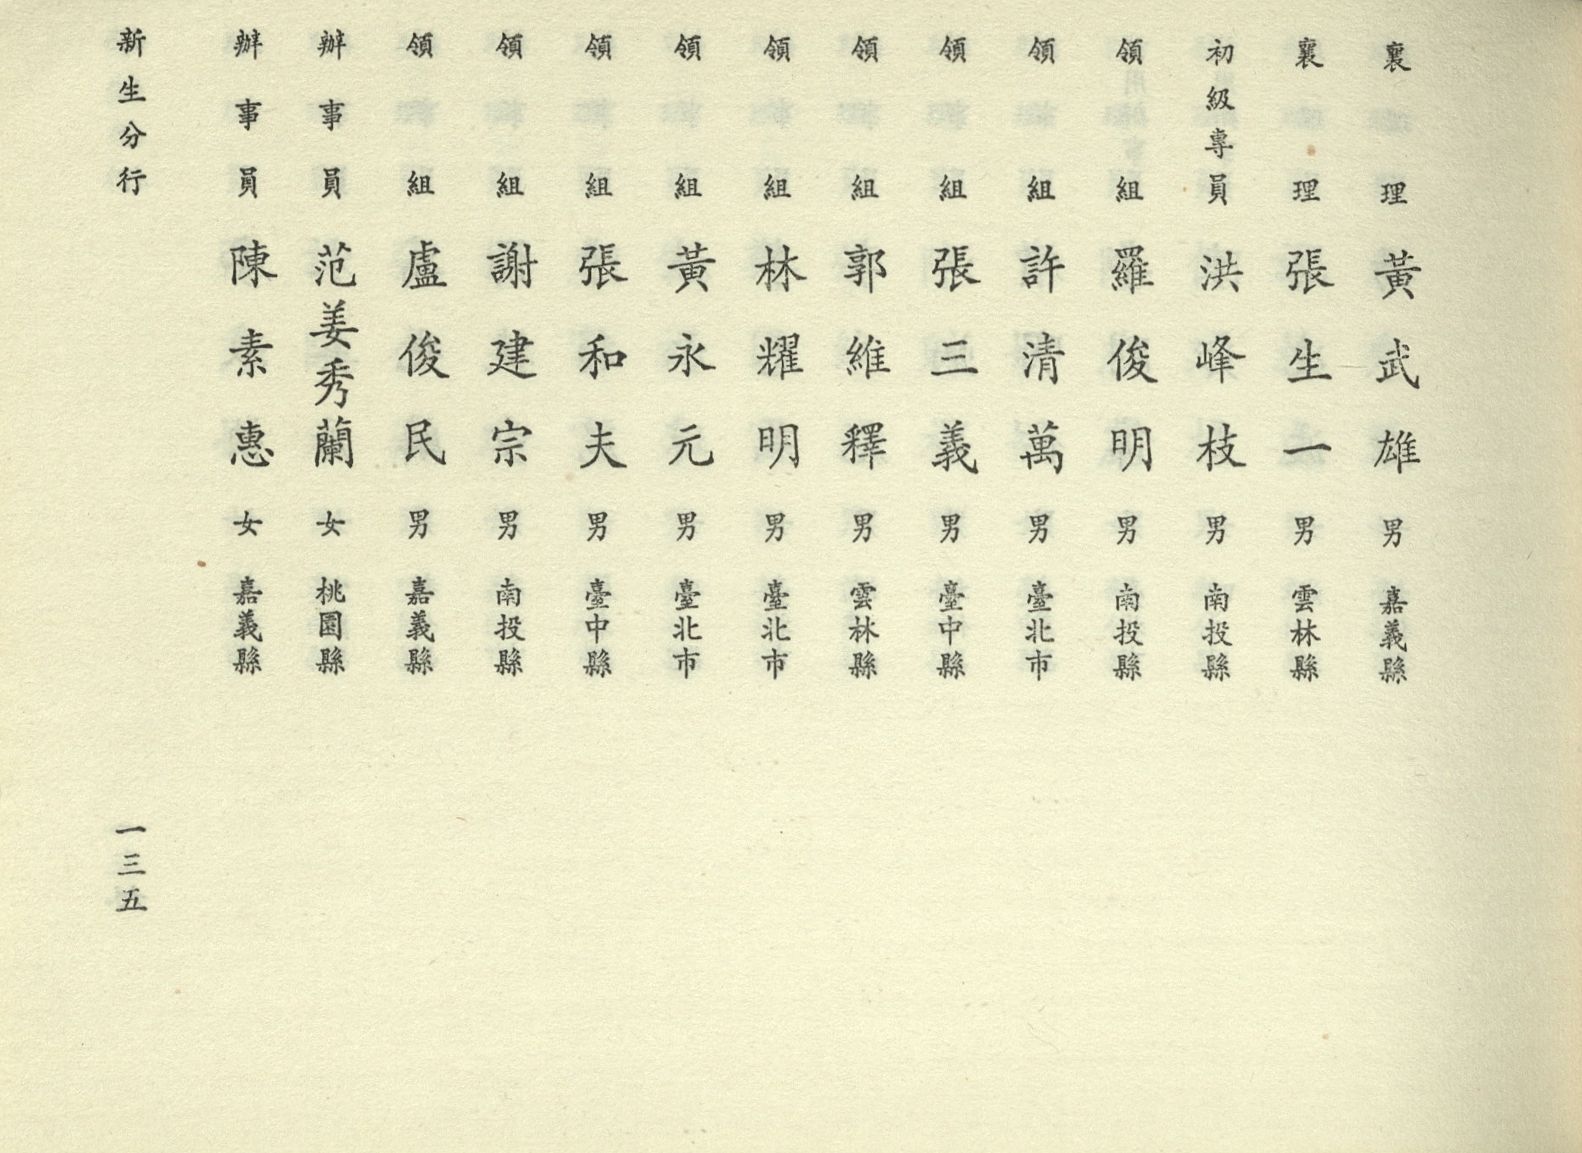 襄理 黃武雄 男 嘉義縣
襄理 張生一 男 雲林縣
初級專員 洪峰枝 男 南投縣
領組 羅俊明 男 南投縣
領組 許清萬 男 臺北市
領組 張三義 男 臺中縣
領組 郭維釋 男 雲林縣
領組 林耀明 男 臺北市
領組 黃永元 男 臺北市
領組 張和夫 男 臺中縣
領組 謝建宗 男 南投縣
領組 盧俊民 男 嘉義縣
辦事員 范姜秀蘭 女 桃園縣
辦事員 陳素惠 女 嘉義縣
新生分行 一三五